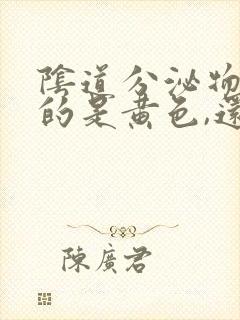 陰道分泌物
的是黃色,還
陳廣君